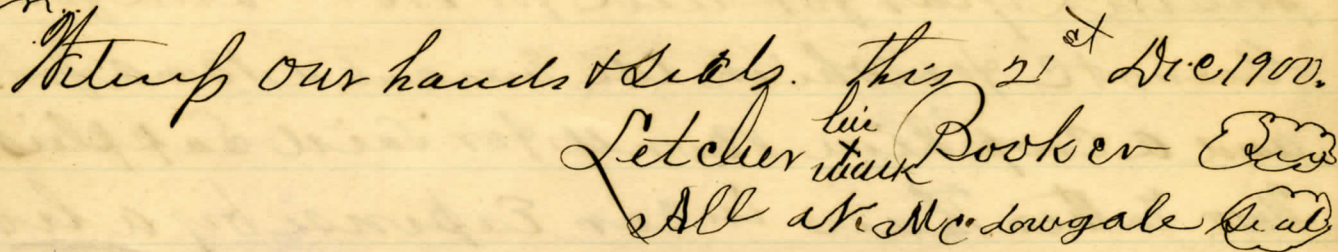 Witness our hands & Seals. this 21st Dec 1900.
Letcher his x mark Booker Seal
McDougale Seal